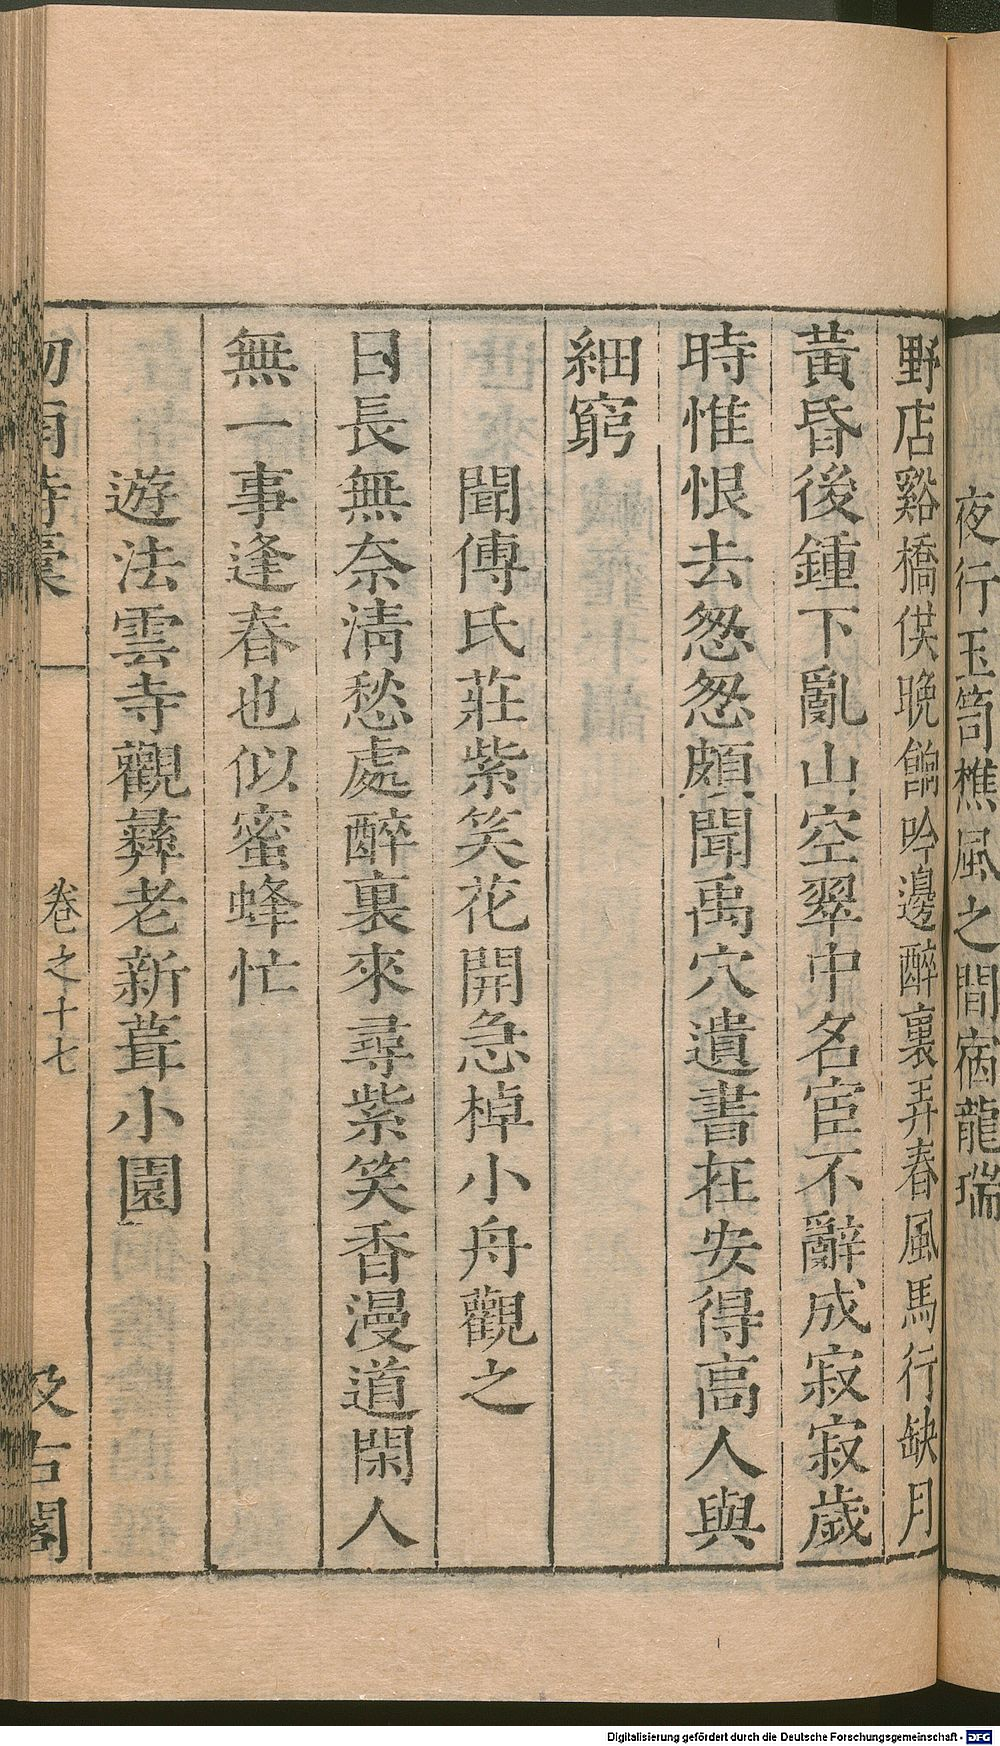 夜行玉笥樵風之間宿龍瑞
野店谿橋供晚餉吟邊醉裏弄春風馬行缺月
黃昏後鍾下亂山空翠中名宦不辭成寂寂歲
時惟恨去怱怱頗聞禹穴遺書在安得高人與
細窮
聞傅氏莊紫笑花開急棹小舟觀之
日長無奈淸愁處醉裏來尋紫笑香漫道閑人
無一事逢春也似蜜蜂忙
遊法雲寺觀彝老新葺小園
卷之十七
古閣
Digitalisierung gefördert durch die Deutsche Forschungsgemeinschaft - DFG